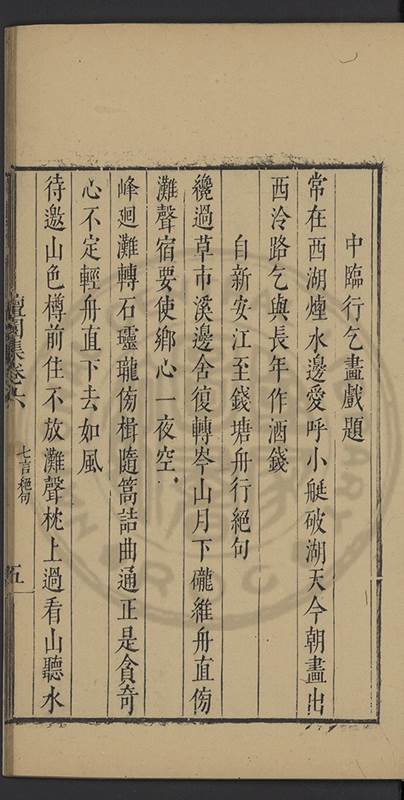 中臨行乞畫戲題
常在西湖煙水邊愛呼小艇破湖天今朝畫出
西泠路乞與長年作酒錢
自新安江至錢塘舟行絕句
纔過草市溪邊舍復轉岑山月下礲維舟直傍
灘聲宿要使鄉心一夜空
峰迴灘轉石瓏傍楫隨篙詰曲通正是貪奇
心不定輕舟直下去如風
待邀山色樽前住不放灘聲枕上過看山聽水
集卷六
七言絕句
五